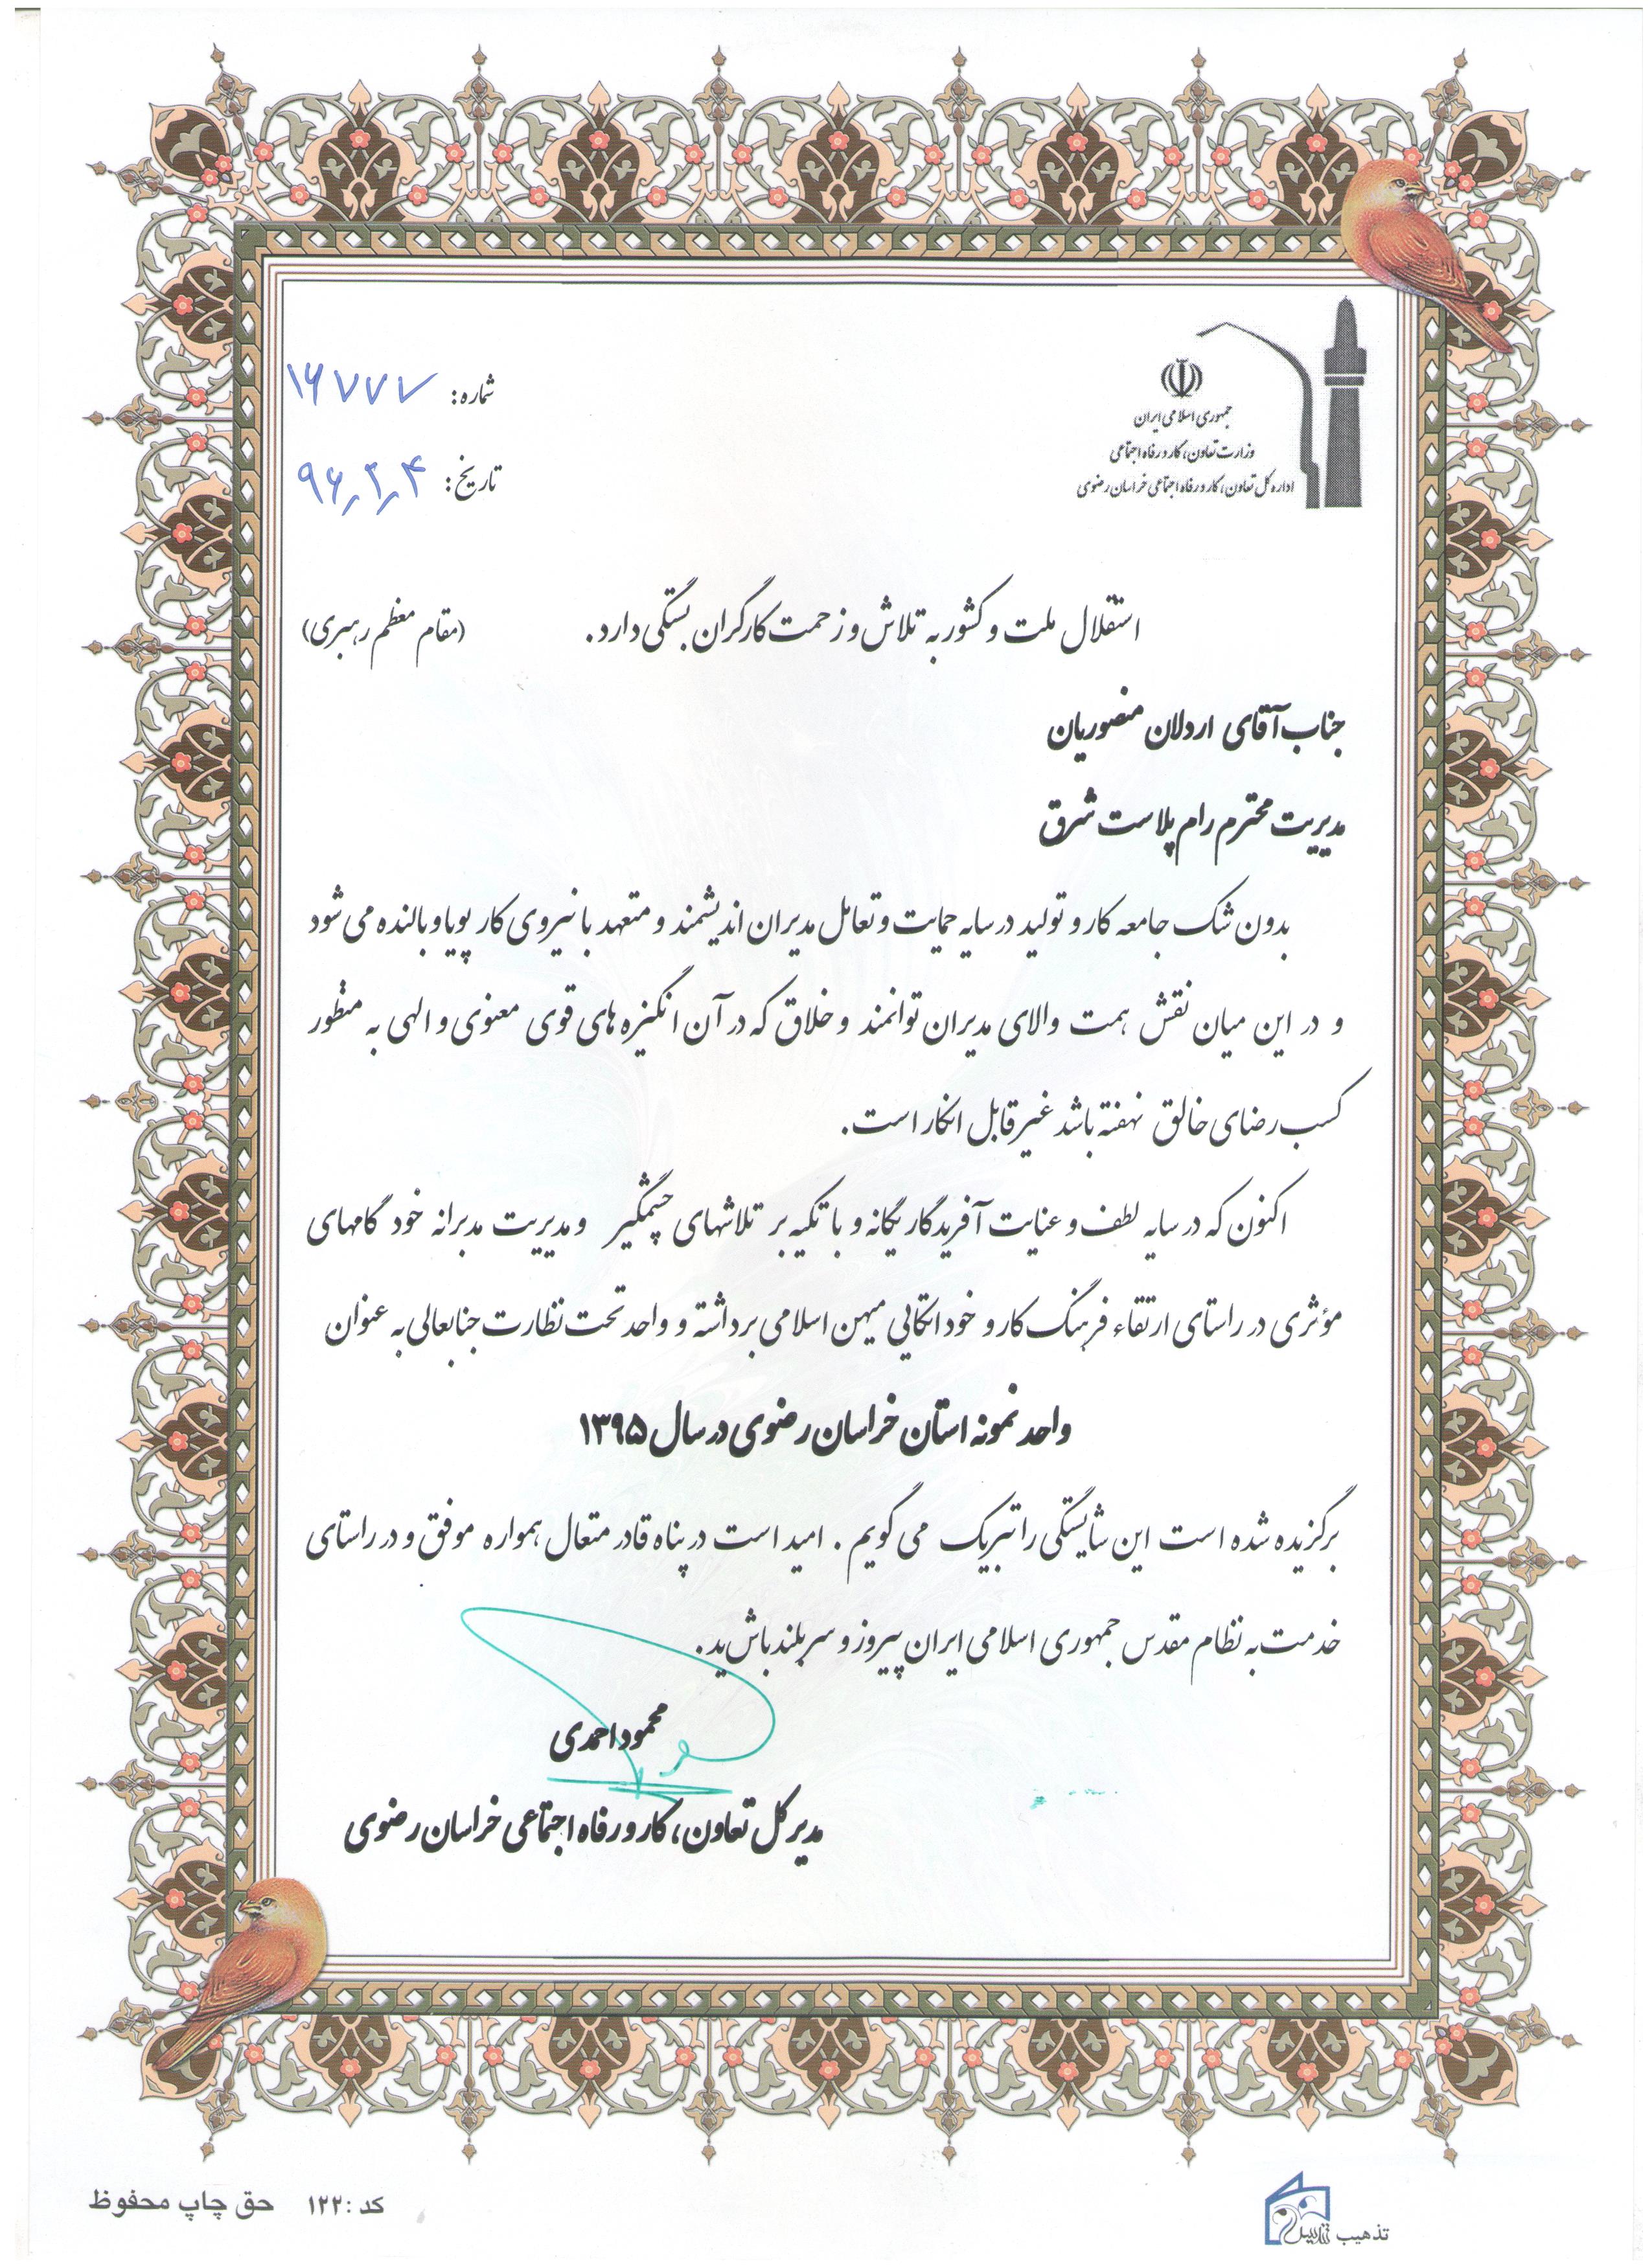 جمهوری اسلامی ایران
وزارت تعاون، کار و رفاه اجتماعی
اداره کل تعاون، کار و رفاه اجتماعی خراسان رضوی
شماره: ۱۶۷۷۷
تاریخ: ۹۶,۲,۴
استقلال ملت و کشور به تلاش و زحمت کارگران بستگی دارد. (مقام معظم رهبری)
جناب آقای اردلان منصوریان
مدیریت محترم رام پلاست شرق
بدون شک جامعه کار و تولید در سایه حمایت و تعامل مدیران اندیشمند و متعهد با نیروی کار پویا و بالنده می شود
و در این میان نقش همت والای مدیران توانمند و خلاق که در آن انگیزه های قوی معنوی و الهی به منظور
کسب رضای خالق نهفته باشد غیر قابل انکار است.
اکنون که در سایه لطف و عنایت آفریدگار یگانه و با تکیه بر تلاشهای چشمگیر و مدیریت مدبرانه خود گامهای
مؤثری در راستای ارتقاء فرهنگ کار و خوداتکایی میهن اسلامی برداشته و واحد تحت نظارت جنابعالی به عنوان
واحد نمونه استان خراسان رضوی در سال ۱۳۹۵
برگزیده شده است این شایستگی را تبریک می گویم. امید است در پناه قادر متعال همواره موفق و در راستای
خدمت به نظام مقدس جمهوری اسلامی ایران پیروز و سربلند باشید.
محمود احمدی
مدیرکل تعاون، کار و رفاه اجتماعی خراسان رضوی
کد: ۱۲۲ حق چاپ محفوظ
تذهیب